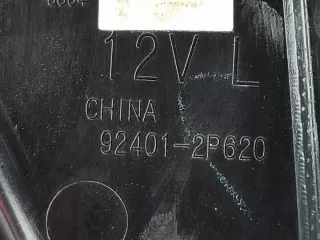 12V L
CHINA
92401-2P620